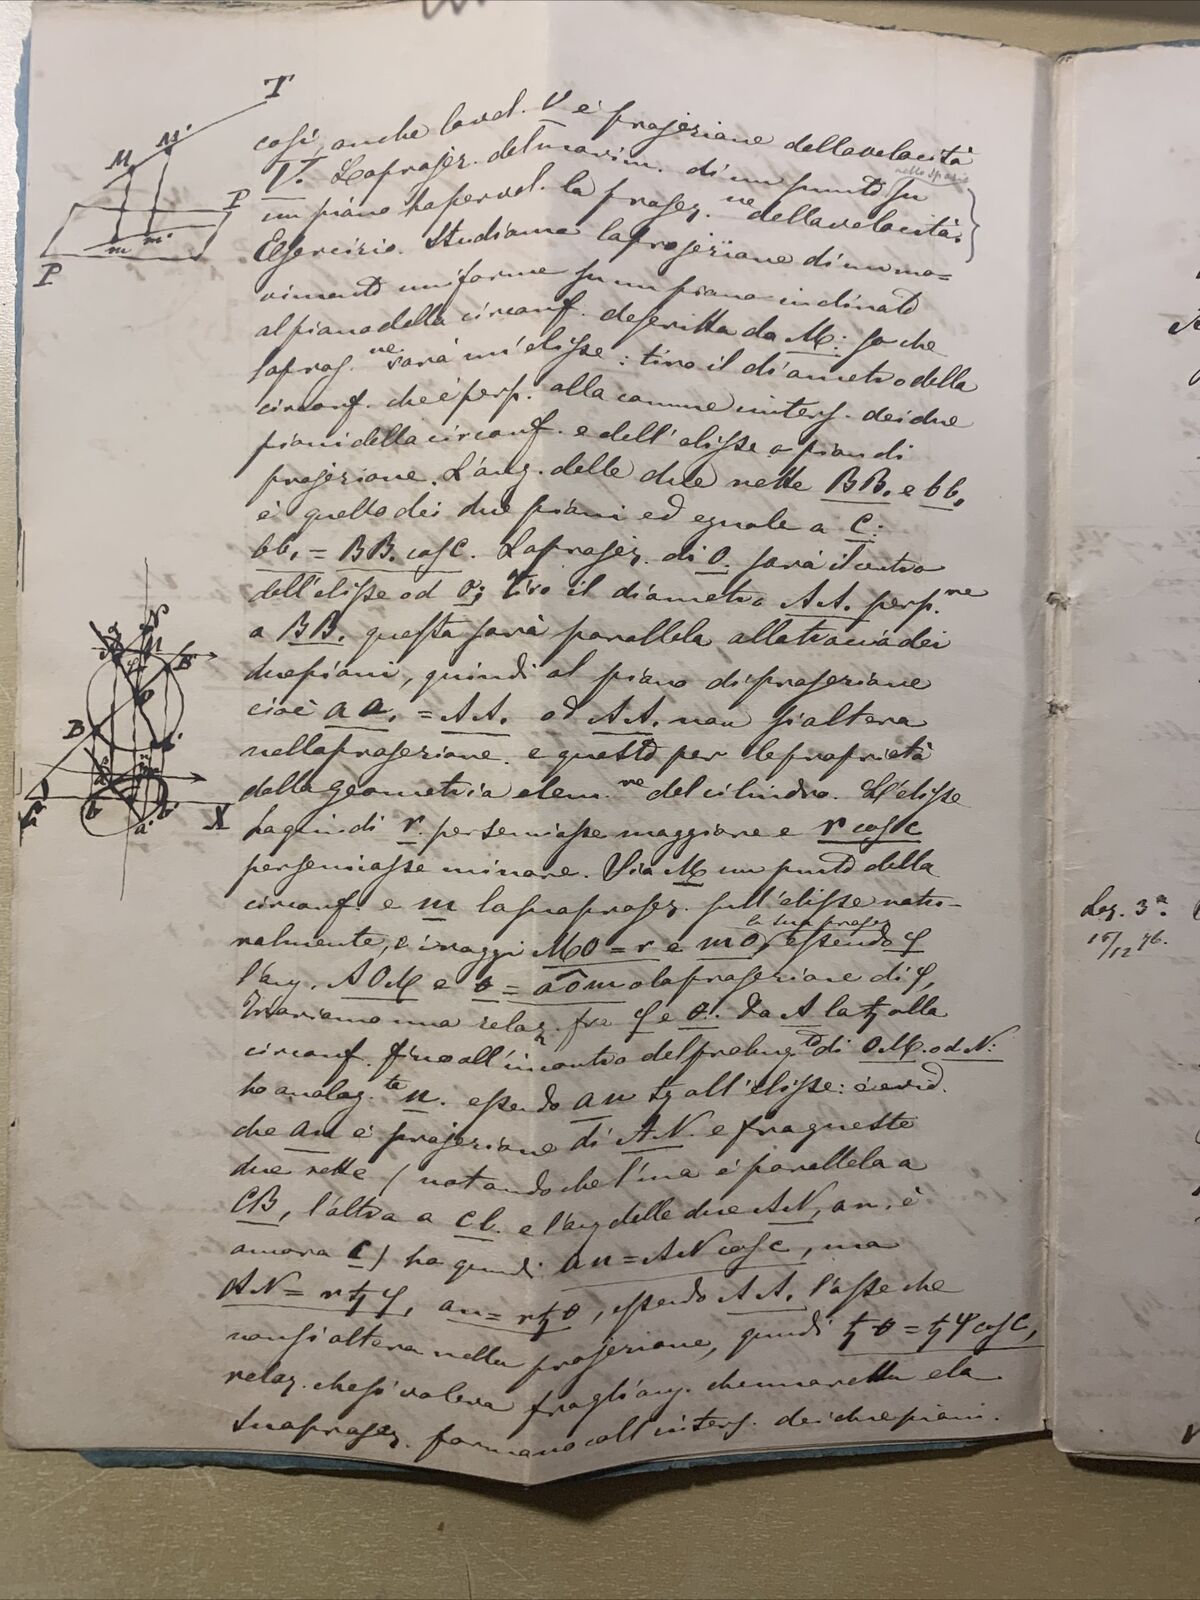 così, anche la vel. v è projezione della velocità
V. La projez. del movim. di un punto su
nello spazio
un piano ha per vel. la projez.ne della velocità.
Esercizio. Studiamo la projezione di un mo=
vimento uniforme su un piano inclinato
al piano della circonf. descritta da M: so che
la proj.ne sarà un'elisse: tiro il diametro della
circonf. che è perp. alla comune inters. dei due
piani della circonf. e dell'elisse o pian di
projezione. L'ang. delle due rette BB, e bb,
è quello dei due piani ed eguale a C:
bb, = BB, cos C. La projez. di O, sarà il centro
dell'elisse od o; tiro il diametro AA, perp.re
a BB, questa sarà parallela alla traccia dei
due piani, quindi al piano di projezione
cioè aa, = AA, od AA, non si altera
nella projezione. e questo per le proprietà
della geometria elem.re del cilindro. L'elisse
ha quindi r per semiasse maggiore e r cos c
per semiasse minore. Sia M un punto della
circonf. e m la sua projez. sull'elisse natu-
ralmente, e i raggi MO = r e mo, essendo φ
la sua projez
l'ang. AOM e θ = aôm o la projezione di φ,
Troviamo una relaz. fra φ e θ. Da A la tg alla
circonf. fino all'incontro del prolung.to di OM. od N:
ho analog.te n. essendo an tg all'elisse: è evid.
che an è projezione di AN. e fra queste
due rette (notando che l'una è parallela a
CB, l'altra a Cb. e l'ang delle due AN, an, è
ancora C) ho quindi an = AN cos c, ma
AN = r tg φ, an = r tg θ, essendo AA, l'asse che
non si altera nella projezione, quindi tg θ = tg φ cos C,
relaz. che si valeva fra gli ang. che una retta e la
sua projez. formano coll'inters. dei due piani.
T
M
M'
P
m
m'
P
N
M
B'
B
b
a'
X
Lez. 3a.
15/12 76.